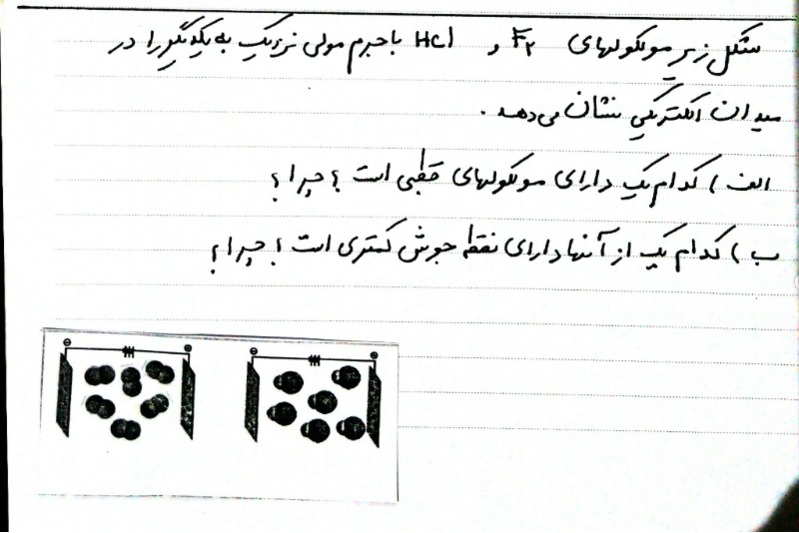 شکل زیر مولکولهای F۲ و HCl با جرم مولی نزدیک به یکدیگر را در
میدان الکتریکی نشان می دهد.
الف) کدام یک دارای مولکولهای قطبی است؟ چرا؟
ب) کدام یک از آنها دارای نقطه جوش کمتری است؟ چرا؟